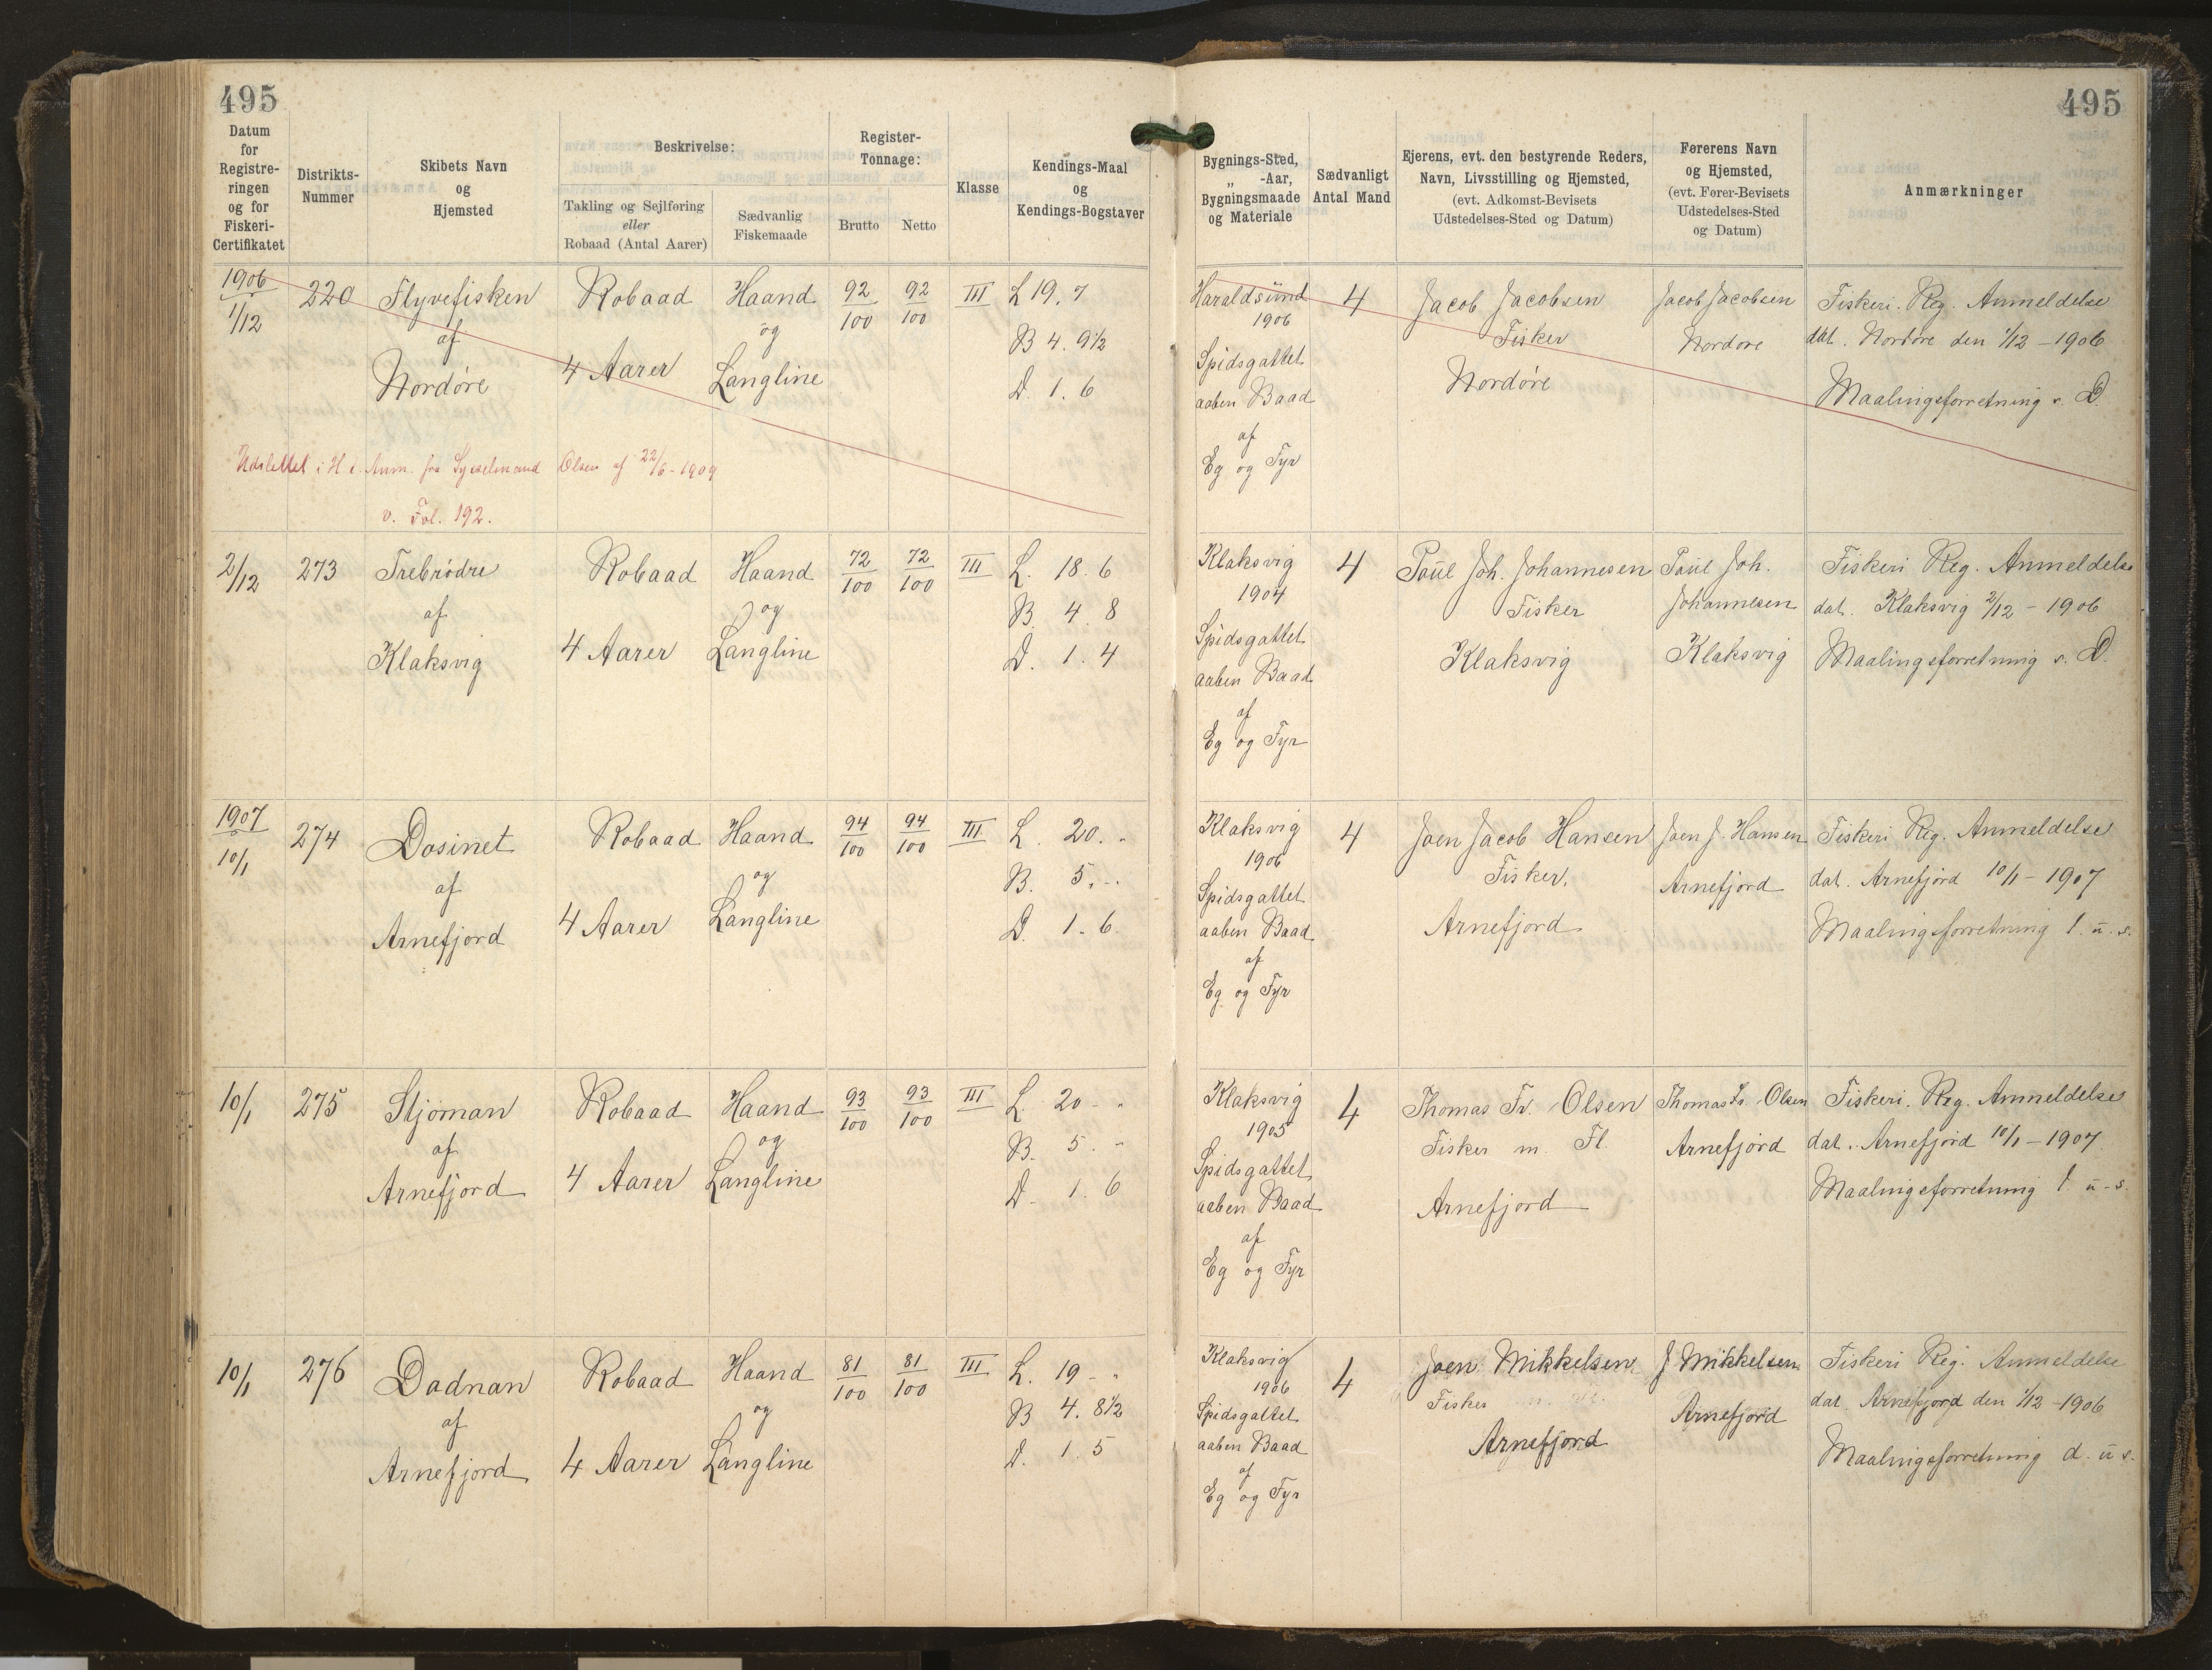 495
495
Datum
for
Registre-
ringen
og for
Fiskeri-
Certifikatet
Distrikts-
Nummer
Skibets Navn
og
Hjemsted
Beskrivelse:
Takling og Sejlføring
eller
Robaad (Antal Aarer)
Sædvanlig
Fiskemaade
Register-
Tonnage:
Brutto
Netto
Klasse
Kendings-Maal
og
Kendings-Bogstaver
Bygnings-Sted,
„ -Aar,
Bygningsmaade
og Materiale
Sædvanligt
Antal Mand
Ejerens, evt. den bestyrende Reders,
Navn, Livsstilling og Hjemsted,
(evt. Adkomst-Bevisets
Udstedelses-Sted og Datum)
Førerens Navn
og Hjemsted,
(evt. Fører-Bevisets
Udstedelses-Sted
og Datum)
Anmærkninger
1906
1/12
220
Flyvefisken
af
Nordøre
Robaad
4 Aarer
Haand
og
Langline
92/100
92/100
III
L 19. 7
B 4. 9½
D. 1. 6
Haraldsünd
1906
Spidsgattet
aaben Baad
af
Eg og Fyr
4
Jacob Jacobsen
Fisker
Nordøre
Jacob Jacobsen
Nordøre
Fiskeri. Reg. Anmeldelse
dat. Nordøre den 1/12 - 1906
Maalingsforretning s. D.
Udslettet i H. t. Anm. fra Sysselmand Olsen af 22/6 - 1909
v. Fol. 192.
2/12
273
Trebrödre
af
Klaksvig
Robaad
4 Aarer
Haand
og
Langline
72/100
72/100
III
L. 18. 6
B. 4. 8
D. 1. 4
Klaksvig
1904
Spidsgattet
aaben Baad
af
Eg og Fyr
4
Paül Joh. Johannesen
Fisker
Klaksvig
Paül Joh.
Johannesen
Klaksvig
Fiskeri Reg. Anmeldelse
dat. Klaksvig 2/12 - 1906
Maalingsforretning s. D.
1907
10/1
274
Dosinet
af
Arnefjord
Robaad
4 Aarer
Haand
og
Langline
94/100
94/100
III
L. 20. "
B. 5. "
D. 1. 6.
Klaksvig
1906
Spidsgattet
aaben Baad
af
Eg og Fyr
4
Joen Jacob Hansen
Fisker,
Arnefjord
Joen J. Hansen
Arnefjord
Fiskeri Reg. Anmeldelse
dat. Arnefjord 10/1 - 1907
Maalingsforretning l. ü. s.
10/1
275
Stjoman
af
Arnefjord
Robaad
4 Aarer
Haand
og
Langline
93/100
93/100
III
L. 20 - "
B. 5. "
D. 1. 6
Klaksvig
1905
Spidsgattet
aaben Baad
af
Eg og Fyr
4
Thomas Fr. Olsen
Fisker m. Fl.
Arnefjord
Thomas Fr. Olsen
Arnefjord
Fiskeri. Reg. Anmeldelse
dat. Arnefjord 10/1 - 1907.
Maalingsforretning l. ü. s.
10/1
276
Dadnan
af
Arnefjord
Robaad
4 Aarer
Haand
og
Langline
81/100
81/100
III
L. 19 - "
B 4. 8½
D. 1. 5
Klaksvig
1906
Spidsgattet
aaben Baad
af
Eg og Fyr
4
Joen Mikkelsen
Fisker
Arnefjord
J Mikkelsen
Arnefjord
Fiskeri Reg. Anmeldelse
dat. Arnefjord den 1/12 - 1906
Maalingsforretning d. ü s.